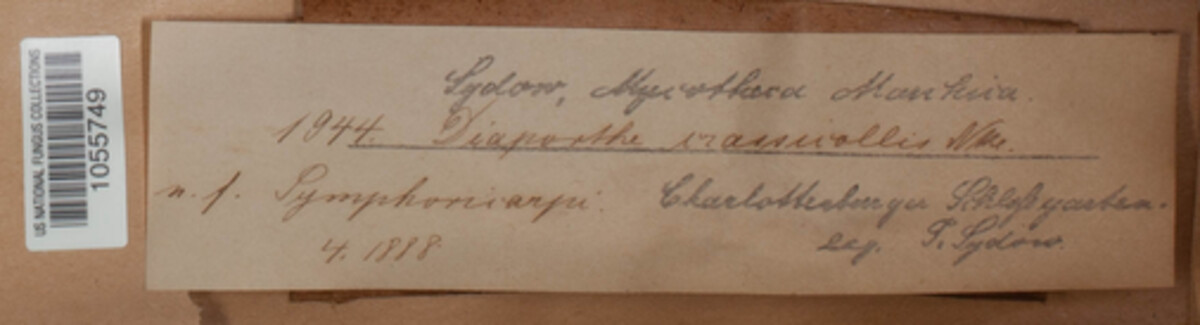 US NATIONAL FUNGUS COLLECTIONS
1055749
Sydow, Mycotheca Marchica.
1944. Diaporthe crassicollis Nke.
n. f. Symphoricarpi. Charlottenburger Schloßgarten.
4. 1888 leg. P. Sydow.